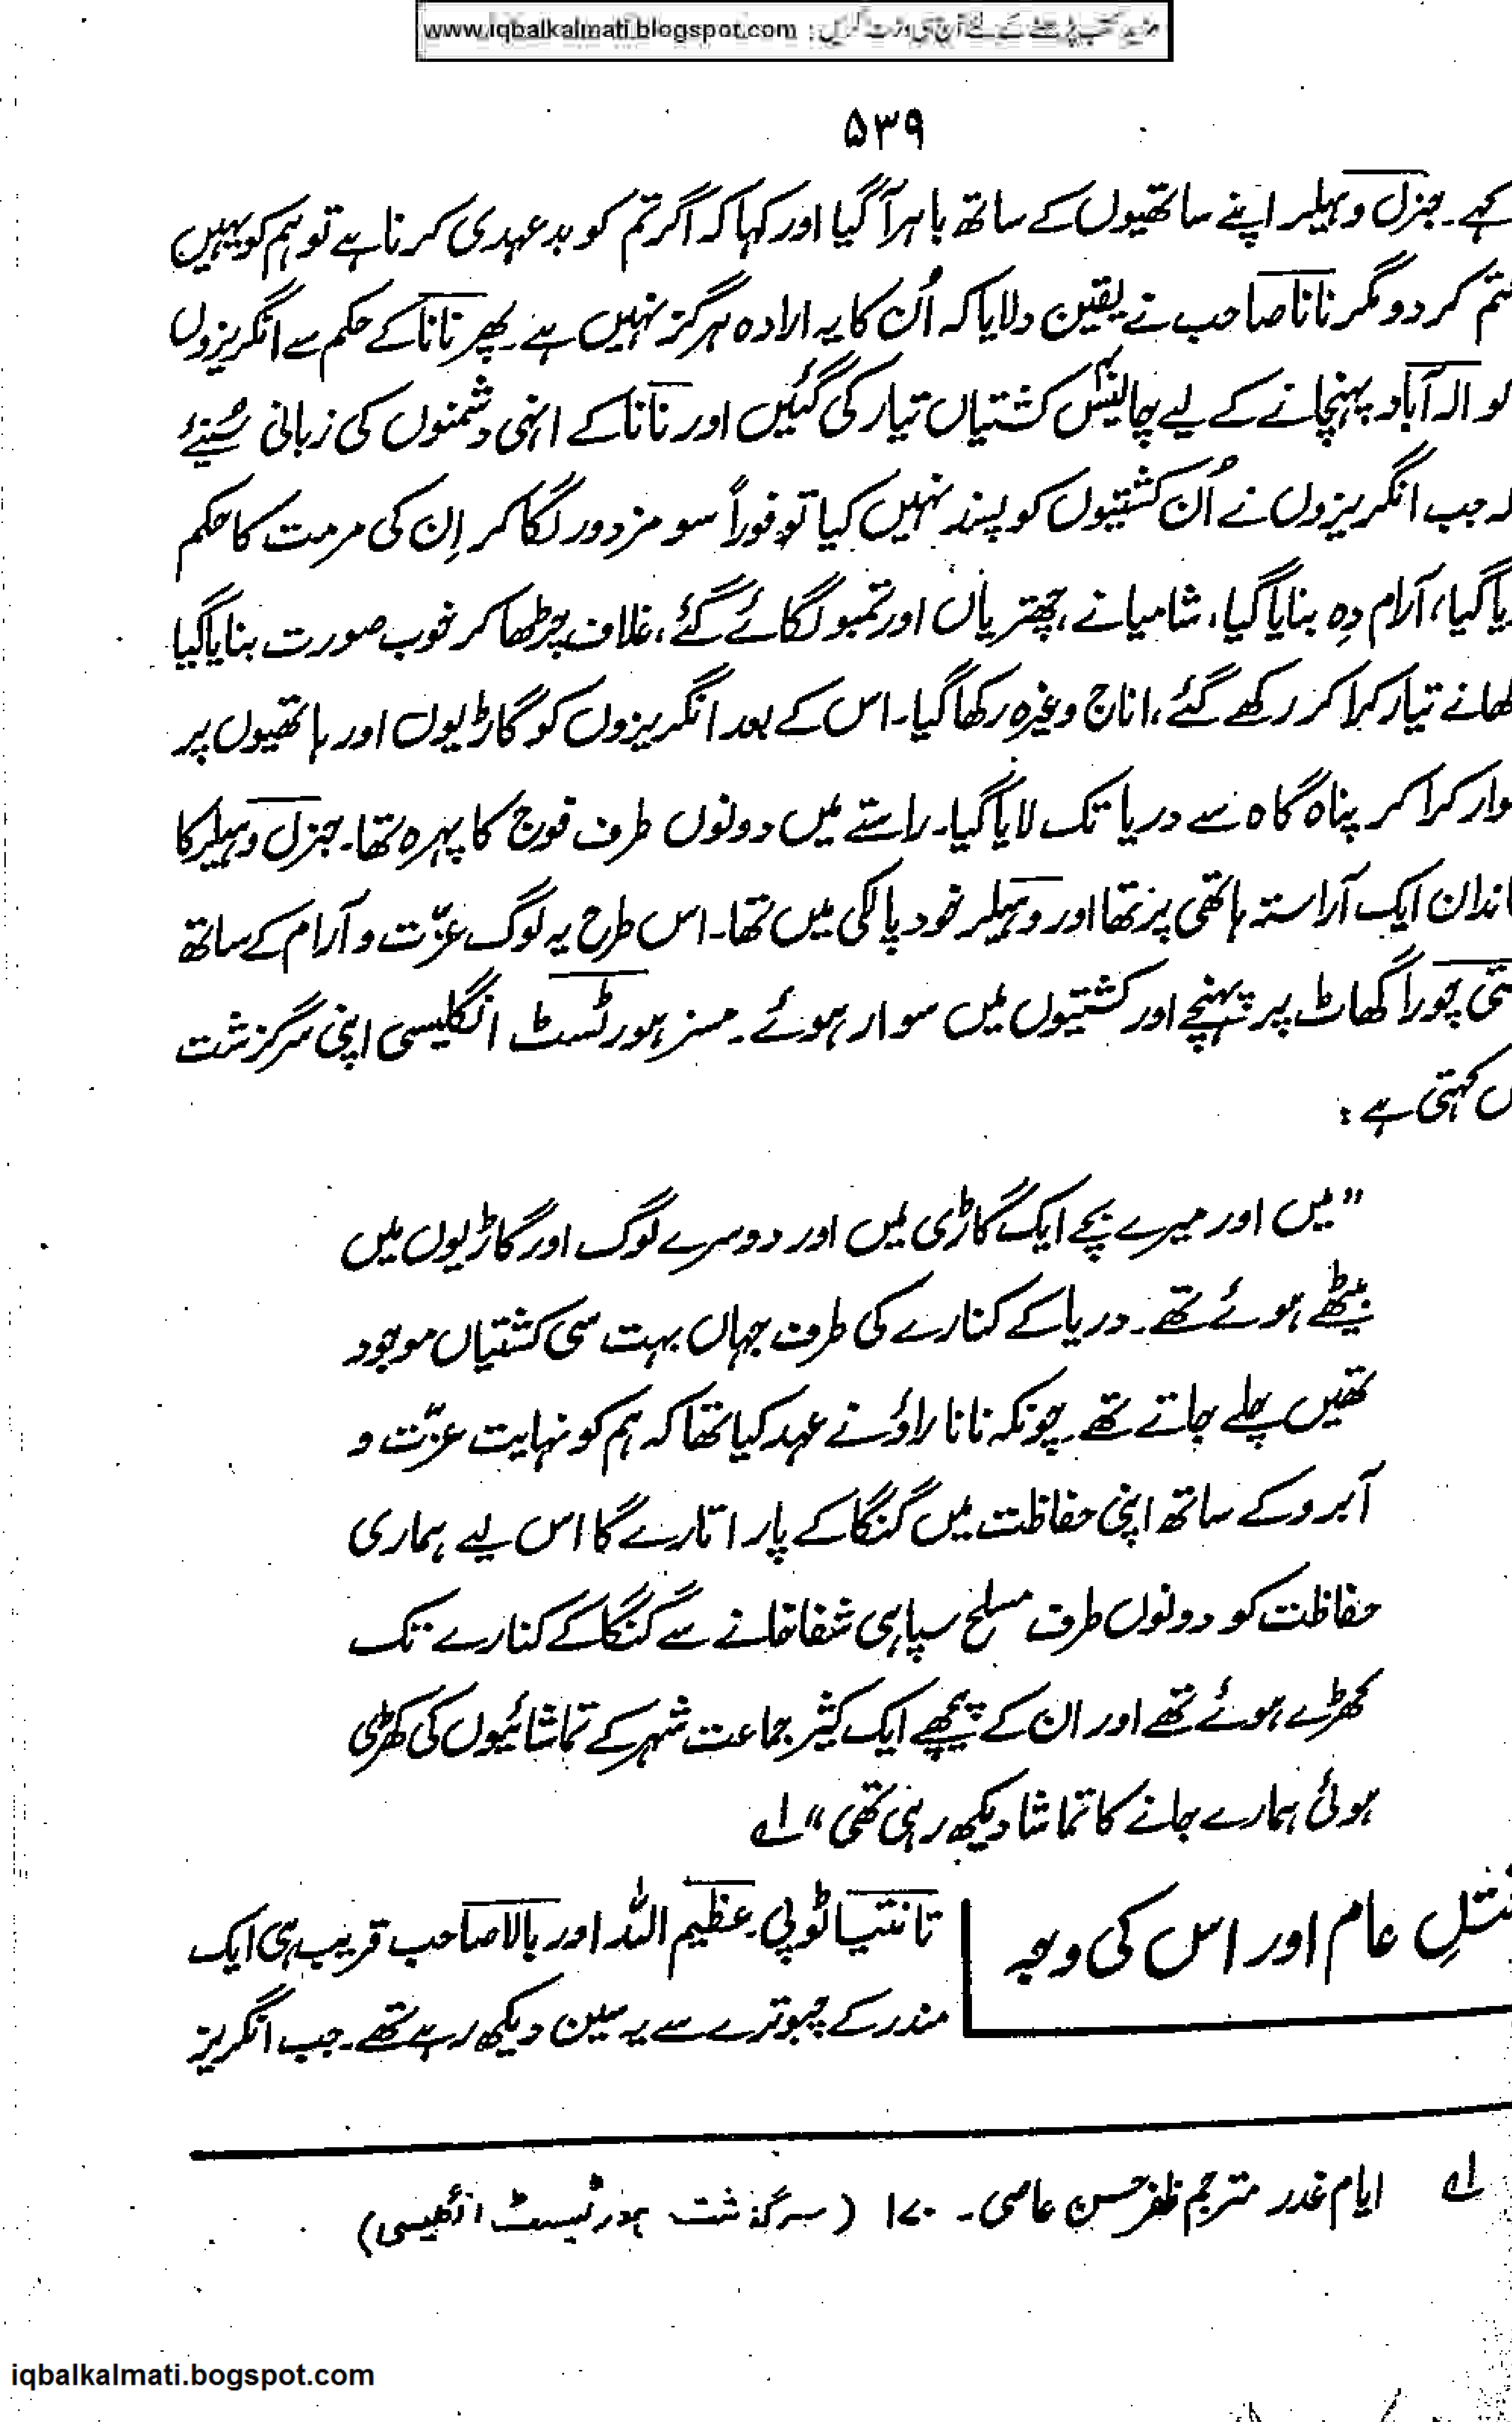 مزید کتب پڑھنے کے لئے آج ہی وزٹ کریں : www.iqbalkalmati.blogspot.com
۵۳۹
کہے۔ جنرل وہیلر اپنے ساتھیوں کے ساتھ باہر آگیا اور کہا کہ اگر تم کو بدعہدی کرنا ہے تو ہم کو یہیں
ختم کردو مگر نانا صاحب نے یقین دلایا کہ اُن کا یہ ارادہ ہرگز نہیں ہے۔ پھر نانا کے حکم سے انگریزوں
کو الہ آباد پہنچانے کے لیے چالیس کشتیاں تیار کی گئیں اور نانا کے انہی دشمنوں کی زبانی سُنیئے
کہ جب انگریزوں نے اُن کشتیوں کو پسند نہیں کیا تو فوراً سو مزدور لگا کر اِن کی مرمت کا حکم
دیا گیا، آرام دِہ بنایا گیا، شامیانے، چھتریاں اور تمبو لگائے گئے، غلاف چڑھا کر خوب صورت بنایا گیا
کھانے تیار کرا کر رکھے گئے، اناج وغیرہ رکھا گیا۔ اس کے بعد انگریزوں کو گاڑیوں اور ہاتھیوں پر
سوار کرا کر پناہ گاہ سے دریا تک لایا گیا۔ راستے میں دونوں طرف فوج کا پہرہ تھا۔ جنرل وہیلر کا
خاندان ایک آراستہ ہاتھی پر تھا اور وہیلر خود پالکی میں تھا۔ اس طرح یہ لوگ عزّت و آرام کے ساتھ
ستی چورا گھاٹ پر پہنچے اور کشتیوں میں سوار ہوئے۔ مسز ہورٹسٹ انگلیسی اپنی سرگزشت
میں کہتی ہے :
”میں اور میرے بچے ایک گاڑی میں اور دوسرے لوگ اور گاڑیوں میں
بیٹھے ہوئے تھے۔ دریا کے کنارے کی طرف جہاں بہت سی کشتیاں موجود
تھیں چلے جاتے تھے۔ چونکہ نانا راؤ نے عہد کیا تھا کہ ہم کو نہایت عزّت و
آبرو کے ساتھ اپنی حفاظت میں گنگا کے پار اتارے گا اس لیے ہماری
حفاظت کو دونوں طرف مسلح سپاہی شفاخانے سے گنگا کے کنارے تک
کھڑے ہوئے تھے اور ان کے پیچھے ایک کثیر جماعت شہر کے تماشائیوں کی کھڑی
ہوئی ہمارے جانے کا تماشا دیکھ رہی تھی“ ؂۱
قتلِ عام اور اس کی وجہ
تانتیا ٹوپی۔ عظیم اللہ اور بالا صاحب قریب ہی ایک
مندر کے چبوترے سے یہ سین دیکھ رہے تھے۔ جب انگریز
؂۱ ایام غدر مترجم ظفر حسن عاصی۔ ۱۷۰ (سرگذشت ہورٹسٹ انگلیسی)
iqbalkalmati.bogspot.com